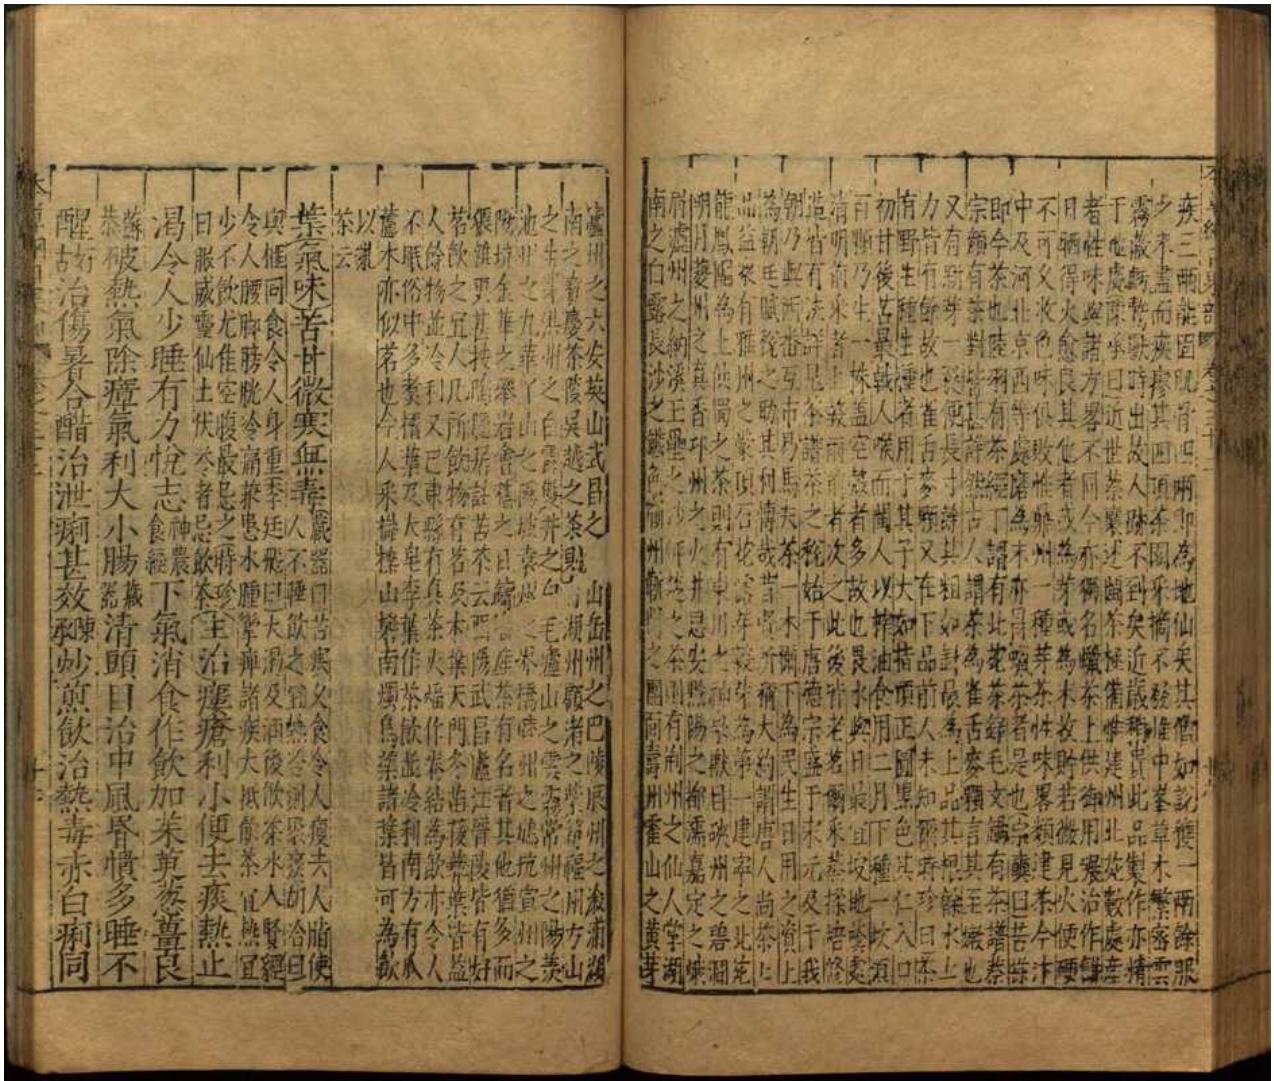 疾三兩能固肌骨四兩即為地仙矣其僧如說獲一兩餘服
之未盡而疾瘳其四頂茶園采摘不廢惟中峯草木繁密雲
霧蔽虧鷙獸時出故人跡不到矣近歲稍貴此品製作亦精
于他處陳承曰近世茶纍述閩茶極備惟建州北苑數處産
者性味與諸方畧不同今亦獨名蠟茶上供御用碾治作餅
日晒得火愈良其他者或為芽或為末收貯若微見火便硬
不可久收色味俱敗惟鼎州一種芽茶性味畧類建茶今汴
中及河北京西等處磨為末亦冒蠟茶者是也宗奭曰苦𣘻
即今茶也陸羽有茶經丁謂有北苑茶錄毛文錫有茶譜蔡
宗顏有茶對皆甚詳然古人謂茶為雀舌麥顆言其至嫩也
又有新芽一發便長寸餘其粗如針最為上品其根餘水土
力皆有餘故也雀舌麥顆又在下品前人未知爾時珍曰茶
有野生種生種者用子其子大如指頂正圓黑色其仁入口
初甘後苦最戟人喉而閩人以榨油食用二月下種一坎須
百顆乃生一株蓋空殼者多故也畏水與日最宜坡地蔭處
清明前采者上穀雨前者次之此後皆老茗爾采蒸揉焙修
造皆有法詳見茶譜茶之稅始于唐德宗盛于宋元及于我
朝乃與西番互市易馬夫茶一木爾下為民生日用之資上
為朝廷賦稅之助其利博哉昔賢所稱大約謂唐人尚茶茶
品益衆有雅州之蒙頂石花露芽穀芽為第一建寧之北苑
龍鳳團為上供蜀之茶則有東川之神泉獸目硤州之碧澗
明月夔州之真香邛州之火井思安黔陽之都濡嘉定之峨
眉瀘州之納溪玉壘之沙坪楚之茶則有荊州之仙人掌湖
南之白露長沙之鐵色蘄州蘄門之團面壽州霍山之黃芽
廬州之六安英山武昌之 山岳州之巴陵辰州之溆浦湖
南之寶慶茶陵吳越之茶則 湖州顧渚之紫筍福州方山
之生芽洪州之白露雙井之白毛廬山之雲霧常州之陽羨
池州之九華丫山之陽坡袁州之界橋睦州之鳩坑宣州之
陽坑金華之舉岩會稽之日鑄皆産茶有名者其他猶多而
猥雜更甚按陶隱居註苦茶云酉陽武昌廬江晉陵皆有好
茗飲之宜人凡所飲物有茗及木葉天門冬苗菝葜葉皆益
人餘物並冷利又巴東縣有真茶火煏作卷結為飲亦令人
不眠俗中多煮檀葉及大皂李葉作茶飲並冷利南方有瓜
蘆木亦似茗也今人采櫧櫟山礬南燭烏藥諸葉皆可為飲
以亂
茶云
葉氣味苦甘微寒無毒藏器曰苦寒久食令人瘦去人脂使
人不睡飲之宜熱冷則聚痰胡洽曰
與榧同食令人身重李廷飛曰大渴及酒後飲茶水入腎經
令人腰脚膀胱冷痛兼患水腫攣痺諸疾大抵飲茶宜熱宜
少不飲尤佳空腹最忌之時珍
曰服威靈仙土伏苓者忌飲茶主治瘻瘡利小便去痰熱止
渴令人少睡有力悅志神農食經下氣消食作飲加茱萸葱薑良
蘇恭破熱氣除瘴氣利大小腸藏器清頭目治中風昏憒多睡不
醒好古治傷暑合醋治泄痢甚效陳承炒煎飲治熱毒赤白痢同